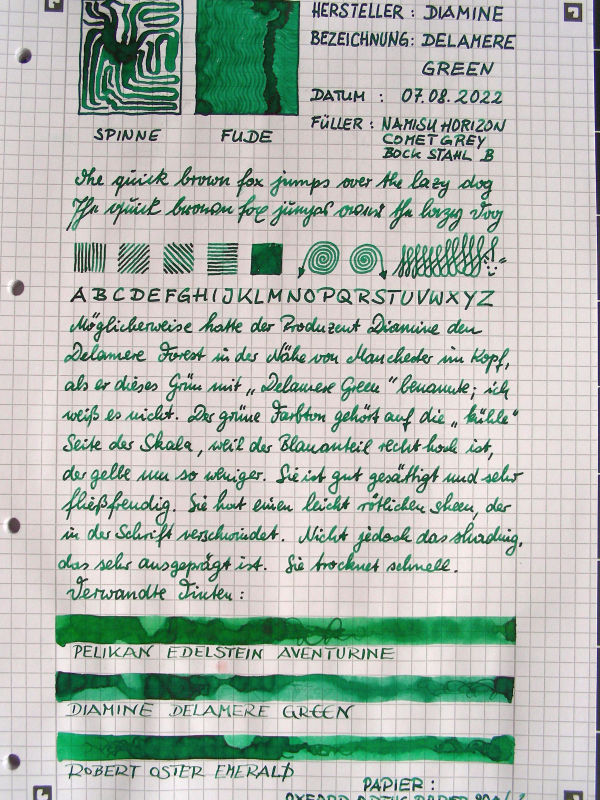 HERSTELLER : DIAMINE
BEZEICHNUNG: DELAMERE
GREEN
DATUM : 07.08.2022
FÜLLER : NAMISU HORIZON
COMET GREY
BOCK STAHL B
SPINNE FUDE
The quick brown fox jumps over the lazy dog
The quick brown fox jumps over the lazy dog
ABCDEFGHIJKLMNOPQRSTUVWXYZ
Möglicherweise hatte der Produzent Diamine den
Delamere Forest in der Nähe von Manchester im Kopf,
als er dieses Grün mit „Delamere Green" benannte; ich
weiß es nicht. Der grüne Farbton gehört auf die „kühle"
Seite der Skala, weil der Blauanteil recht hoch ist,
der gelbe um so weniger. Sie ist gut gesättigt und sehr
fließfreudig. Sie hat einen leicht rötlichen sheen, der
in der Schrift verschwindet. Nicht jedoch das shading,
das sehr ausgeprägt ist. Sie trocknet schnell.
Verwandte Tinten :
PELIKAN EDELSTEIN AVENTURINE
DIAMINE DELAMERE GREEN
ROBERT OSTER EMERALD
PAPIER :
OXFORD OPTIK PAPER